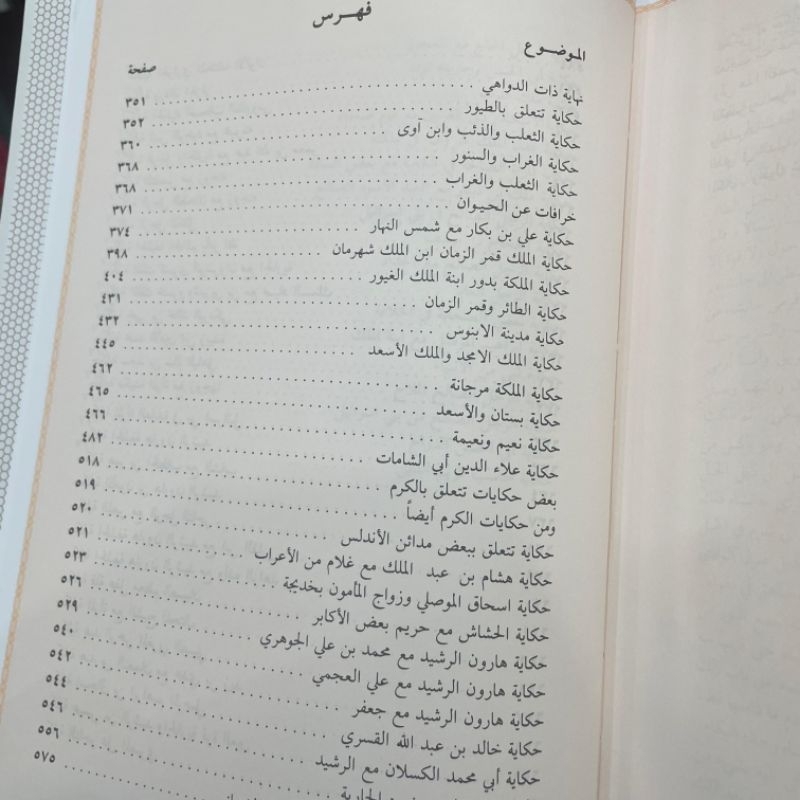 فهرس
الموضوع صفحة
نهاية ذات الدواهي ٣٥١
حكاية تتعلق بالطيور ٣٥٢
حكاية الثعلب والذئب وابن آوى ٣٦٠
حكاية الغراب والسنور ٣٦٨
حكاية الثعلب والغراب ٣٦٨
خرافات عن الحيوان ٣٧١
حكاية علي بن بكار مع شمس النهار ٣٧٤
حكاية الملك قمر الزمان ابن الملك شهرمان ٣٩٨
حكاية الملكة بدور ابنة الملك الغيور ٤٠٤
حكاية الطائر وقمر الزمان ٤٣١
حكاية مدينة الابنوس ٤٣٢
حكاية الملك الامجد والملك الأسعد ٤٤٥
حكاية الملكة مرجانة ٤٦٢
حكاية بستان والأسعد ٤٦٥
حكاية نعيم ونعيمة ٤٦٦
حكاية علاء الدين أبي الشامات ٤٨٢
بعض حكايات تتعلق بالكرم ٥١٨
ومن حكايات الكرم أيضاً ٥١٩
حكاية تتعلق ببعض مدائن الأندلس ٥٢٠
حكاية هشام بن عبد الملك مع غلام من الأعراب ٥٢١
حكاية اسحاق الموصلي وزواج المأمون بخديجة ٥٢٣
حكاية الحشاش مع حريم بعض الأكابر ٥٢٦
حكاية هارون الرشيد مع محمد بن علي الجوهري ٥٢٩
حكاية هارون الرشيد مع علي العجمي ٥٤٠
حكاية هارون الرشيد مع جعفر ٥٤٢
حكاية خالد بن عبد الله القسري ٥٤٤
حكاية أبي محمد الكسلان مع الرشيد ٥٤٦
الجارية ٥٥٦
٥٧٥